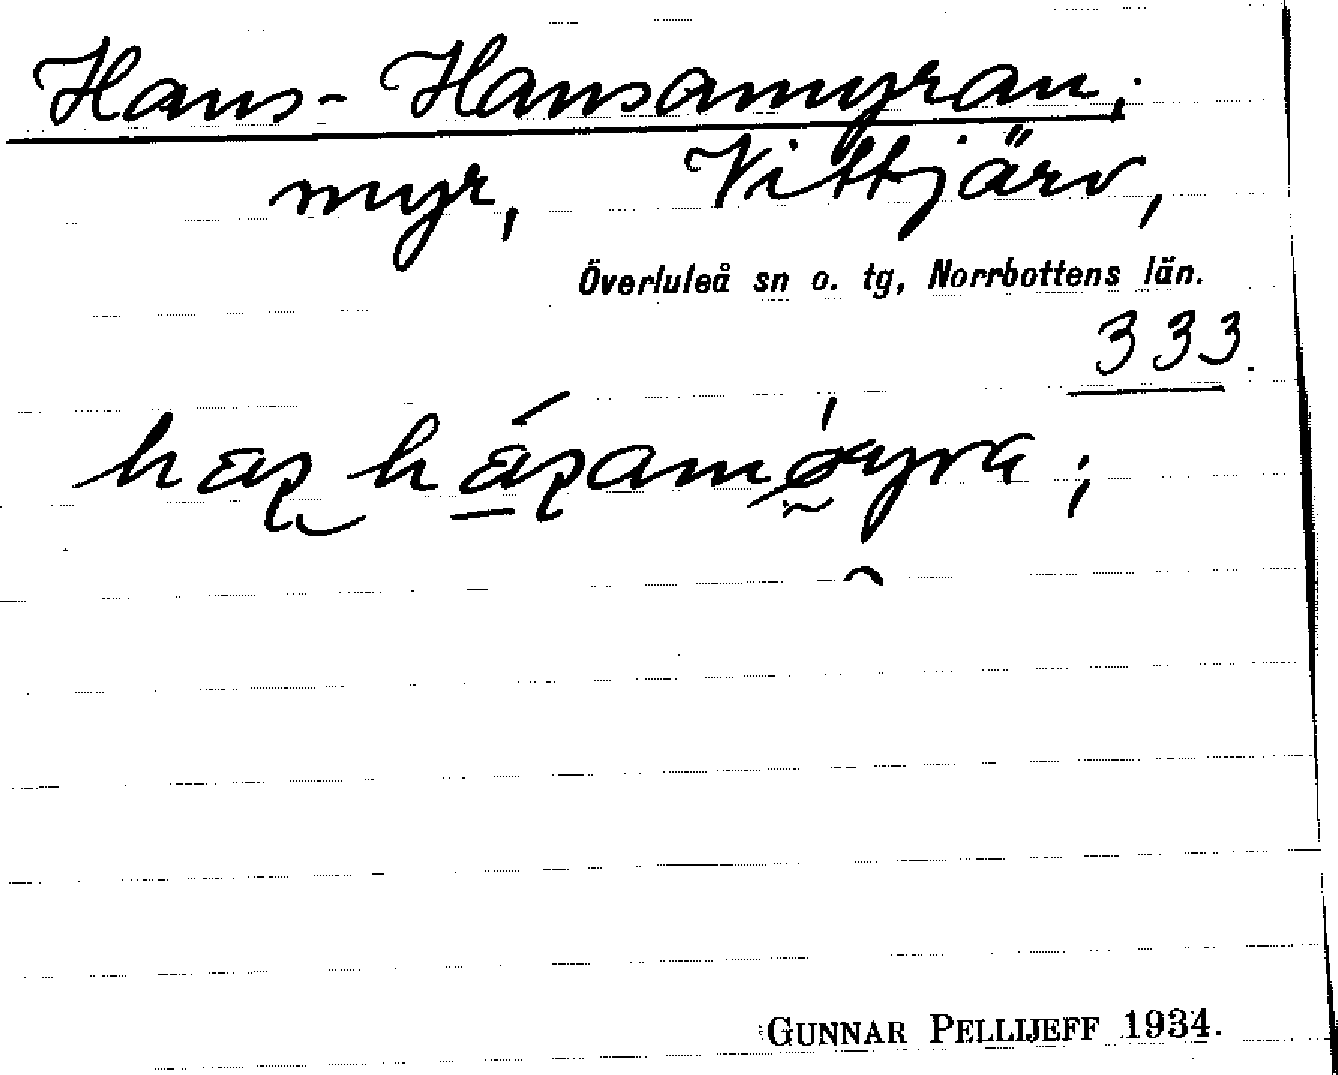 Hans-Hansamyran;
myr, Vittjärv,
Överluleå sn o. tg, Norrbottens län.
333.
GUNNAR PELLIJEFF 1934.